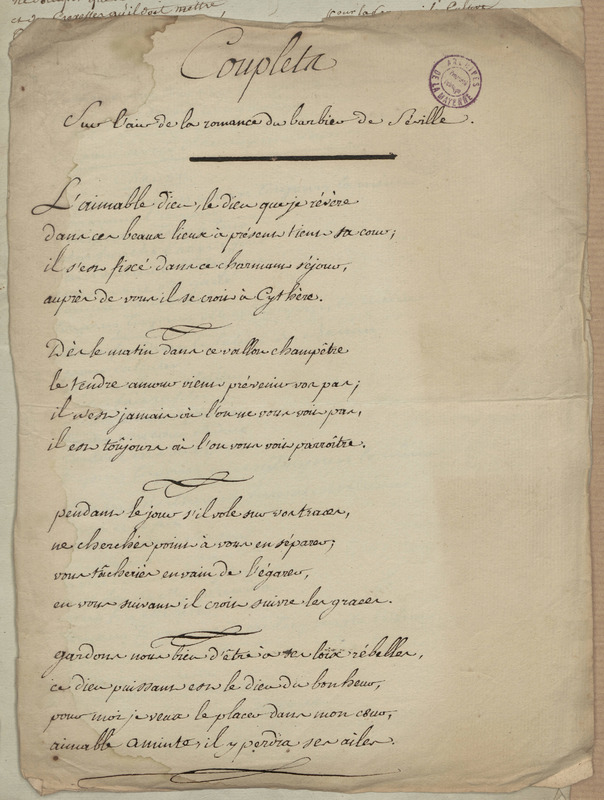 Couplets
Sur l'air de la romance du barbier de Séville.
ARCHIVES DE LA MAYENNE
L'aimable dieu, le dieu que je révère
dans ces beaux lieux à présent tient sa cour;
il s'est fixé dans ce charmant séjour,
auprès de vous il se croit à Cythère.
Dès le matin dans ce vallon champêtre
le tendre amour vient prévenir vos pas;
il n'est jamais où l'on ne vous voit pas,
il est toûjours où l'on vous voit parroître.
pendant le jour s'il vole sur vos traces,
ne cherchés point à vous en séparer;
vous tâcheriés en vain de l'égarer,
en vous suivant il croit suivre les graces.
gardons nous bien d'être à ses loix rébelles,
ce dieu puissant est le dieu du bonheur,
pour moi je veux le placer dans mon cœur,
aimable aminte, il y perdra ses ailes.